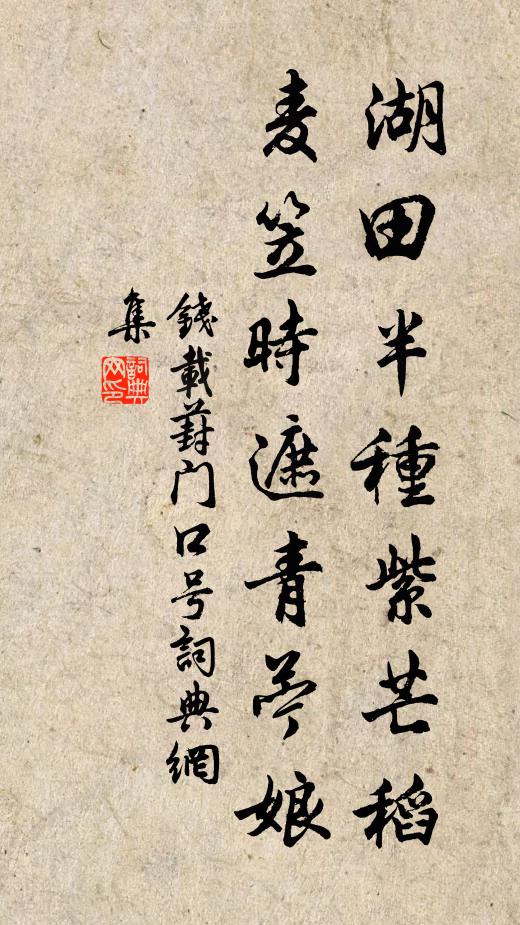 湖田半種紫芒稻
麦笠時遮青苧娘
錢載葑门口号詞典網
集
詞典网印